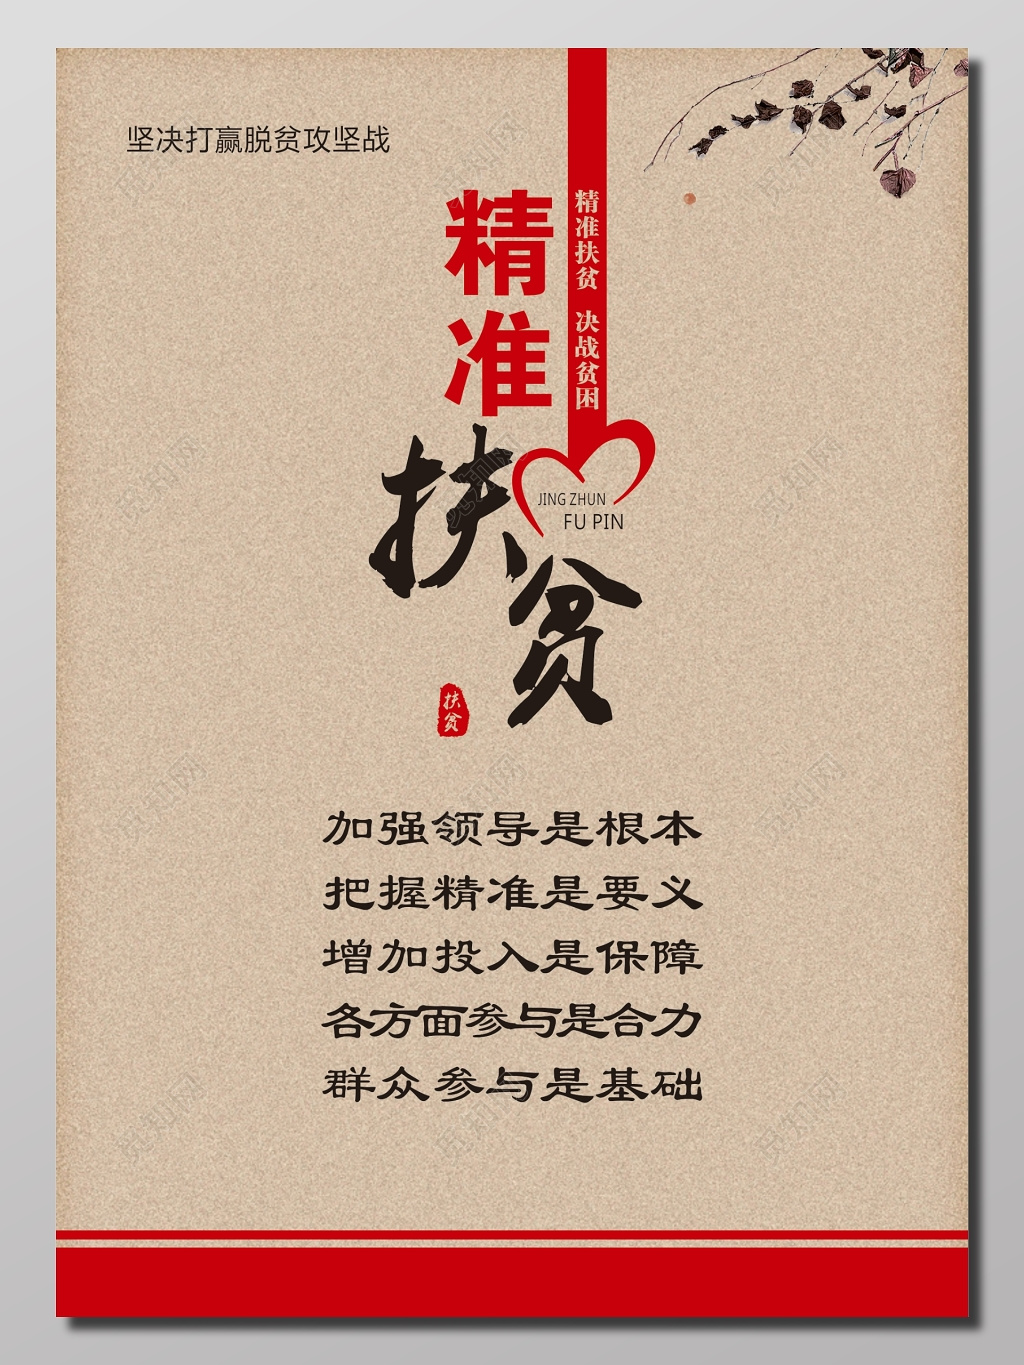 坚决打赢脱贫攻坚战
精准
扶贫
精准扶贫 决战贫困
JING ZHUN
FU PIN
扶贫
加强领导是根本
把握精准是要义
增加投入是保障
各方面参与是合力
群众参与是基础
觅知网